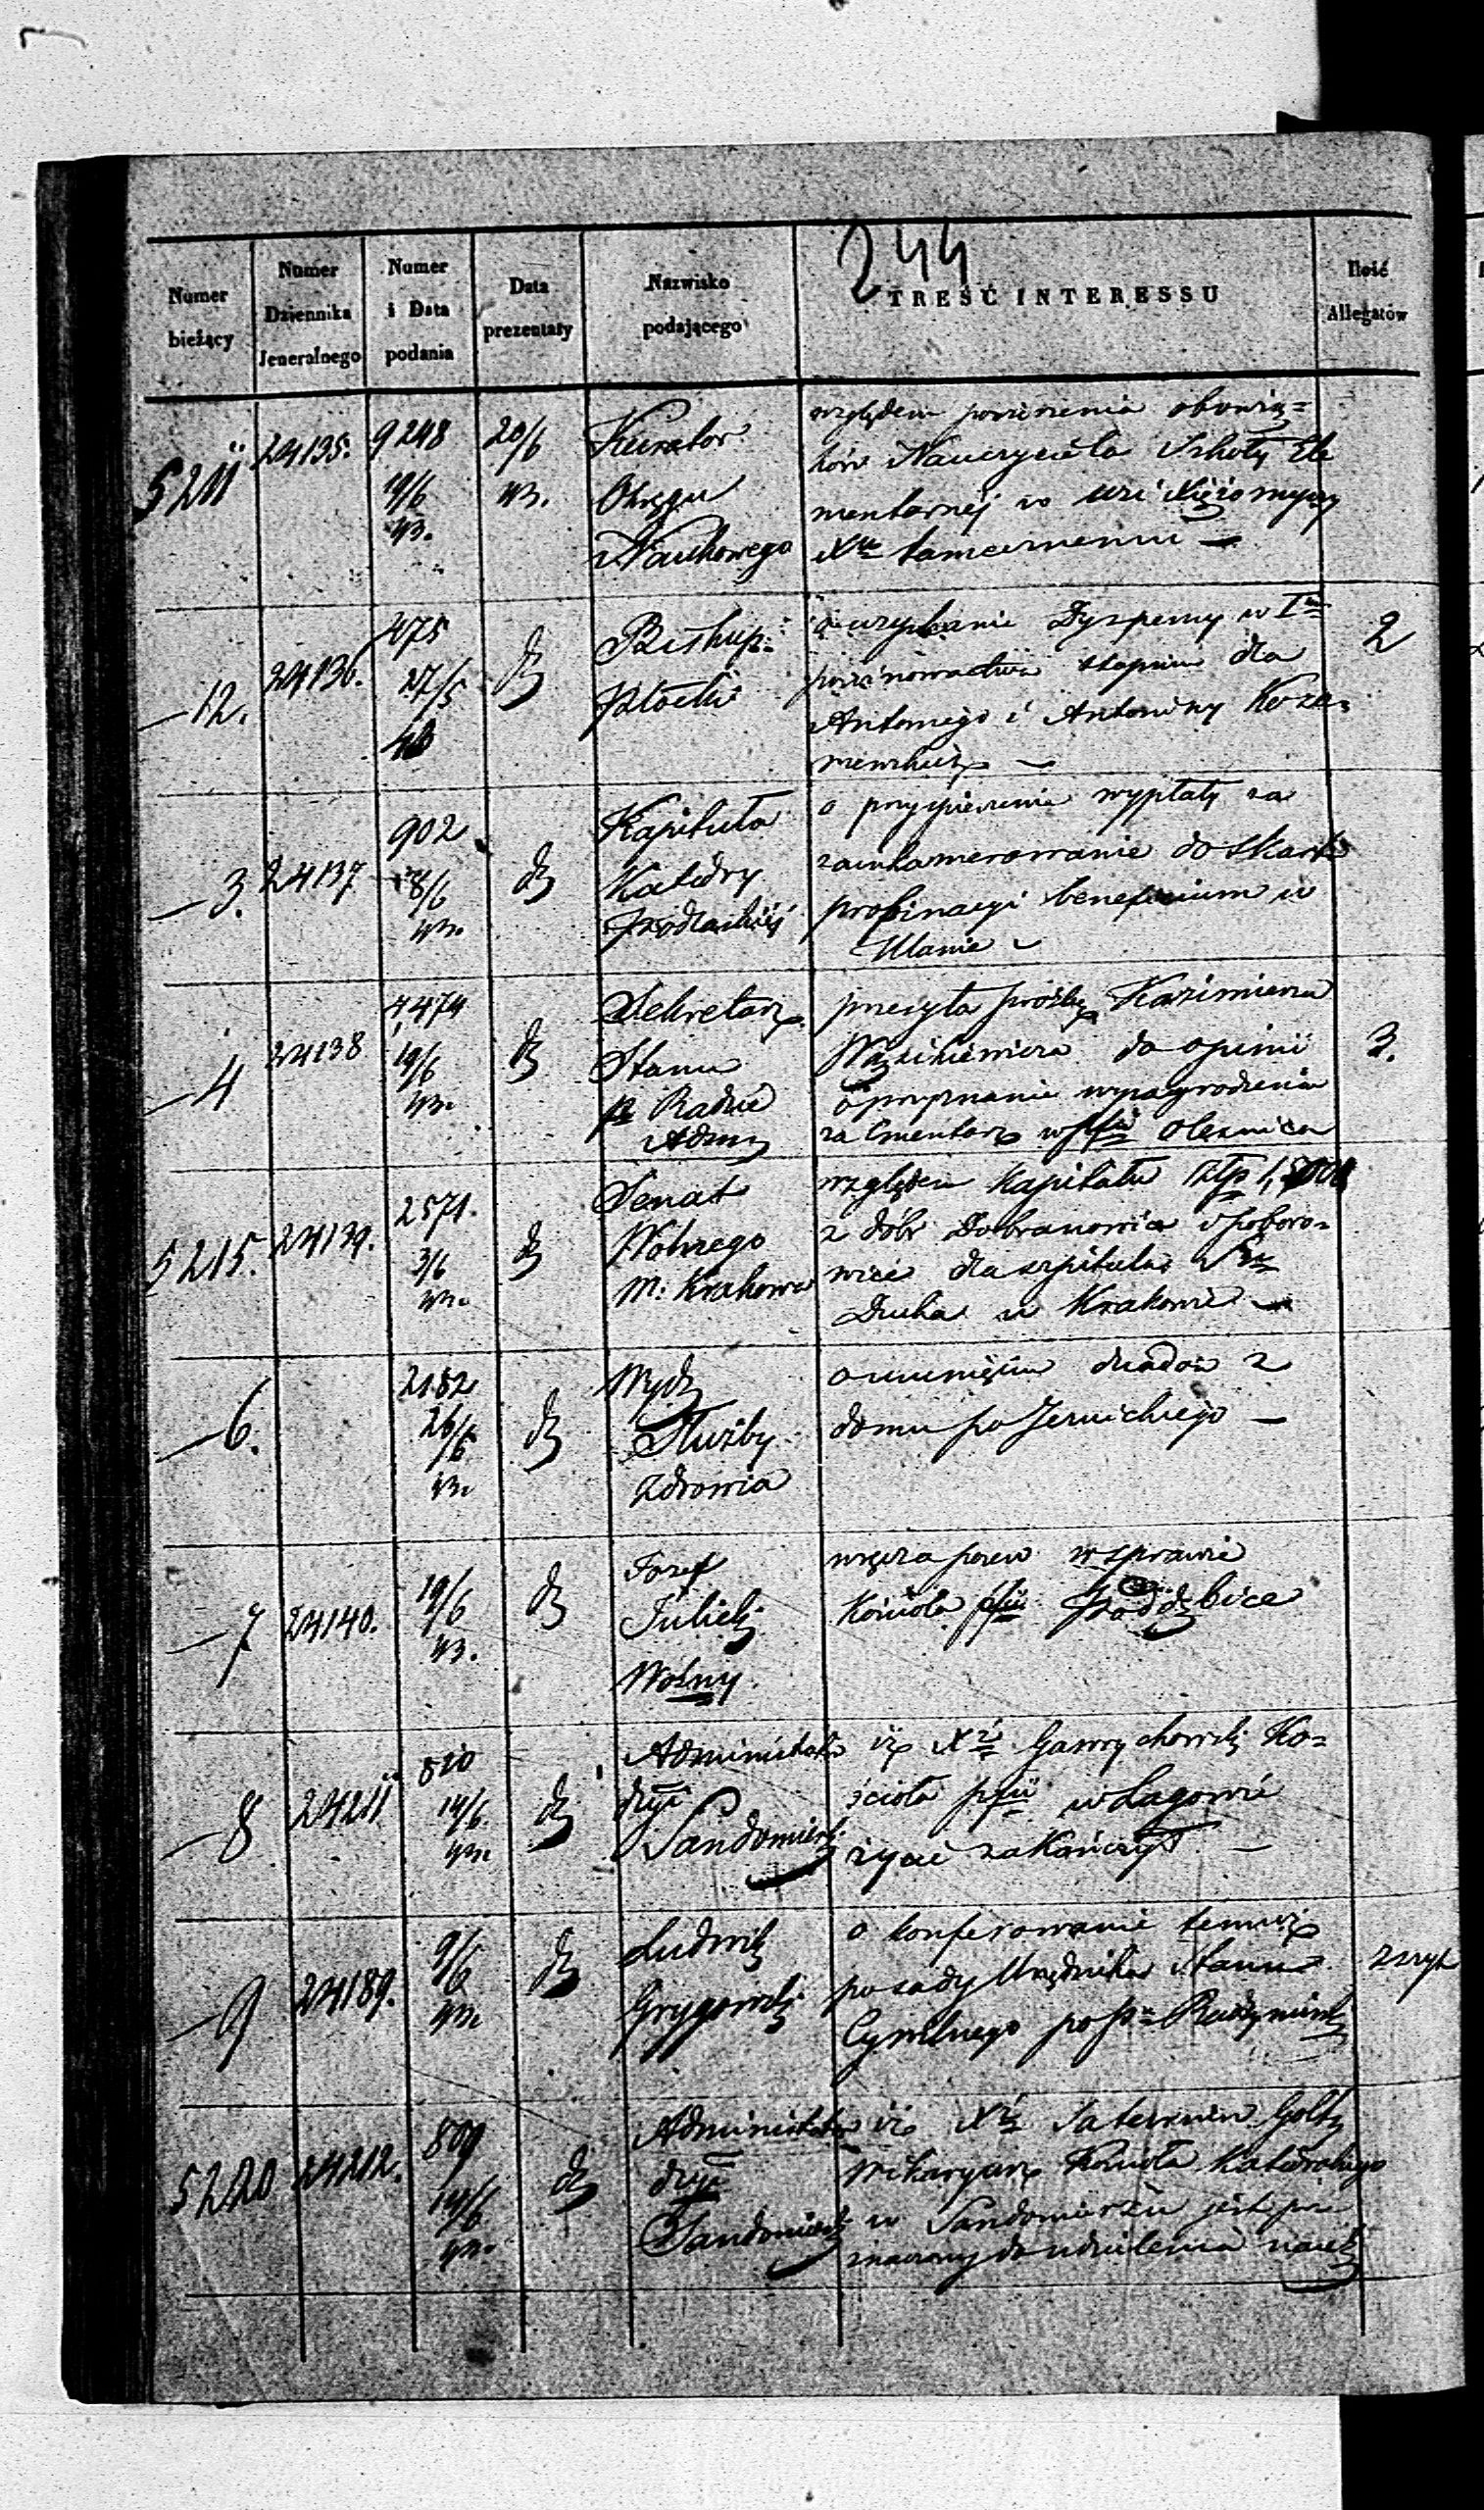 244
Numer bieżący
Numer Dziennika Jeneralnego
Numer i Data podania
Data prezentaty
Nazwisko podającego
TREŚĆ INTERESSU
Ilość Allegatów
5211 24135. 9248 19/6 43. 20/6 43.
Kurator
Okręgu
Naukowego
względem powierzenia obowią=
ków Nauczyciela Szkoły Ele
mentarnéj w wsi
Xdu tamecznemu —
—12. 24136. 275 27/5 43 dto
Biskup
Płocki
o uzyskanie Dyspensy w Im
stopniu dla
Antoniego i Antoniny
—
2
—3. 24137 902 8/6 43. dto
Kapituła
Katedry
Podlaskiéj
o przyspieszenie wypłaty za
zainkamerowanie do Skarbu
propinacyi beneficium w
Ulanie —
—4 24138 7,474 19/6 43. dto
Sekretarz
Stanu
pr Radzie
Admin
przesyła prośbę Kazimierza
do opinii
o przyznanie wynagrodzenia
za Cmentarz w pfii Olesnica
3.
5215. 24139. 2571. 3/6 43. dto
Senat
Wolnego
M. Krakowa
względem Kapitału Złp
z dóbr Dobranowice i
wice dla szpitala Sgo
Ducha w Krakowie —
—6. 2182 26/5 43. dto
Wydz
Służby
Zdrowia
o usunięciu dziadów z
domu po Jezuickiego —
—7 24140. 19/6 43. dto
Józef
Julicki
Woźny.
wręcza pozew w sprawie
Kościoła pfii Poddębice
—8 24211 810 14/6 43. dto
Administrator
dyi
Sandomiersk
iż Xdz Gawrychowski Ko=
ścioła pfii w Łagowie
życie zakończył —
—9 24189. 9/6 43. dto
Ludwik
Grygowski
o konferowanie temuż
posady Urzędnika Stanu
Cywilnego po
zszyt
5220 24212. 809 14/6 43. dto
Administrator
dyi
Sandomiersk
iż Xdz Saturnin Goltz
Wikaryusz Kościoła Katedralnego
w Sandomierzu jest prze
znaczony do udzielania nauk